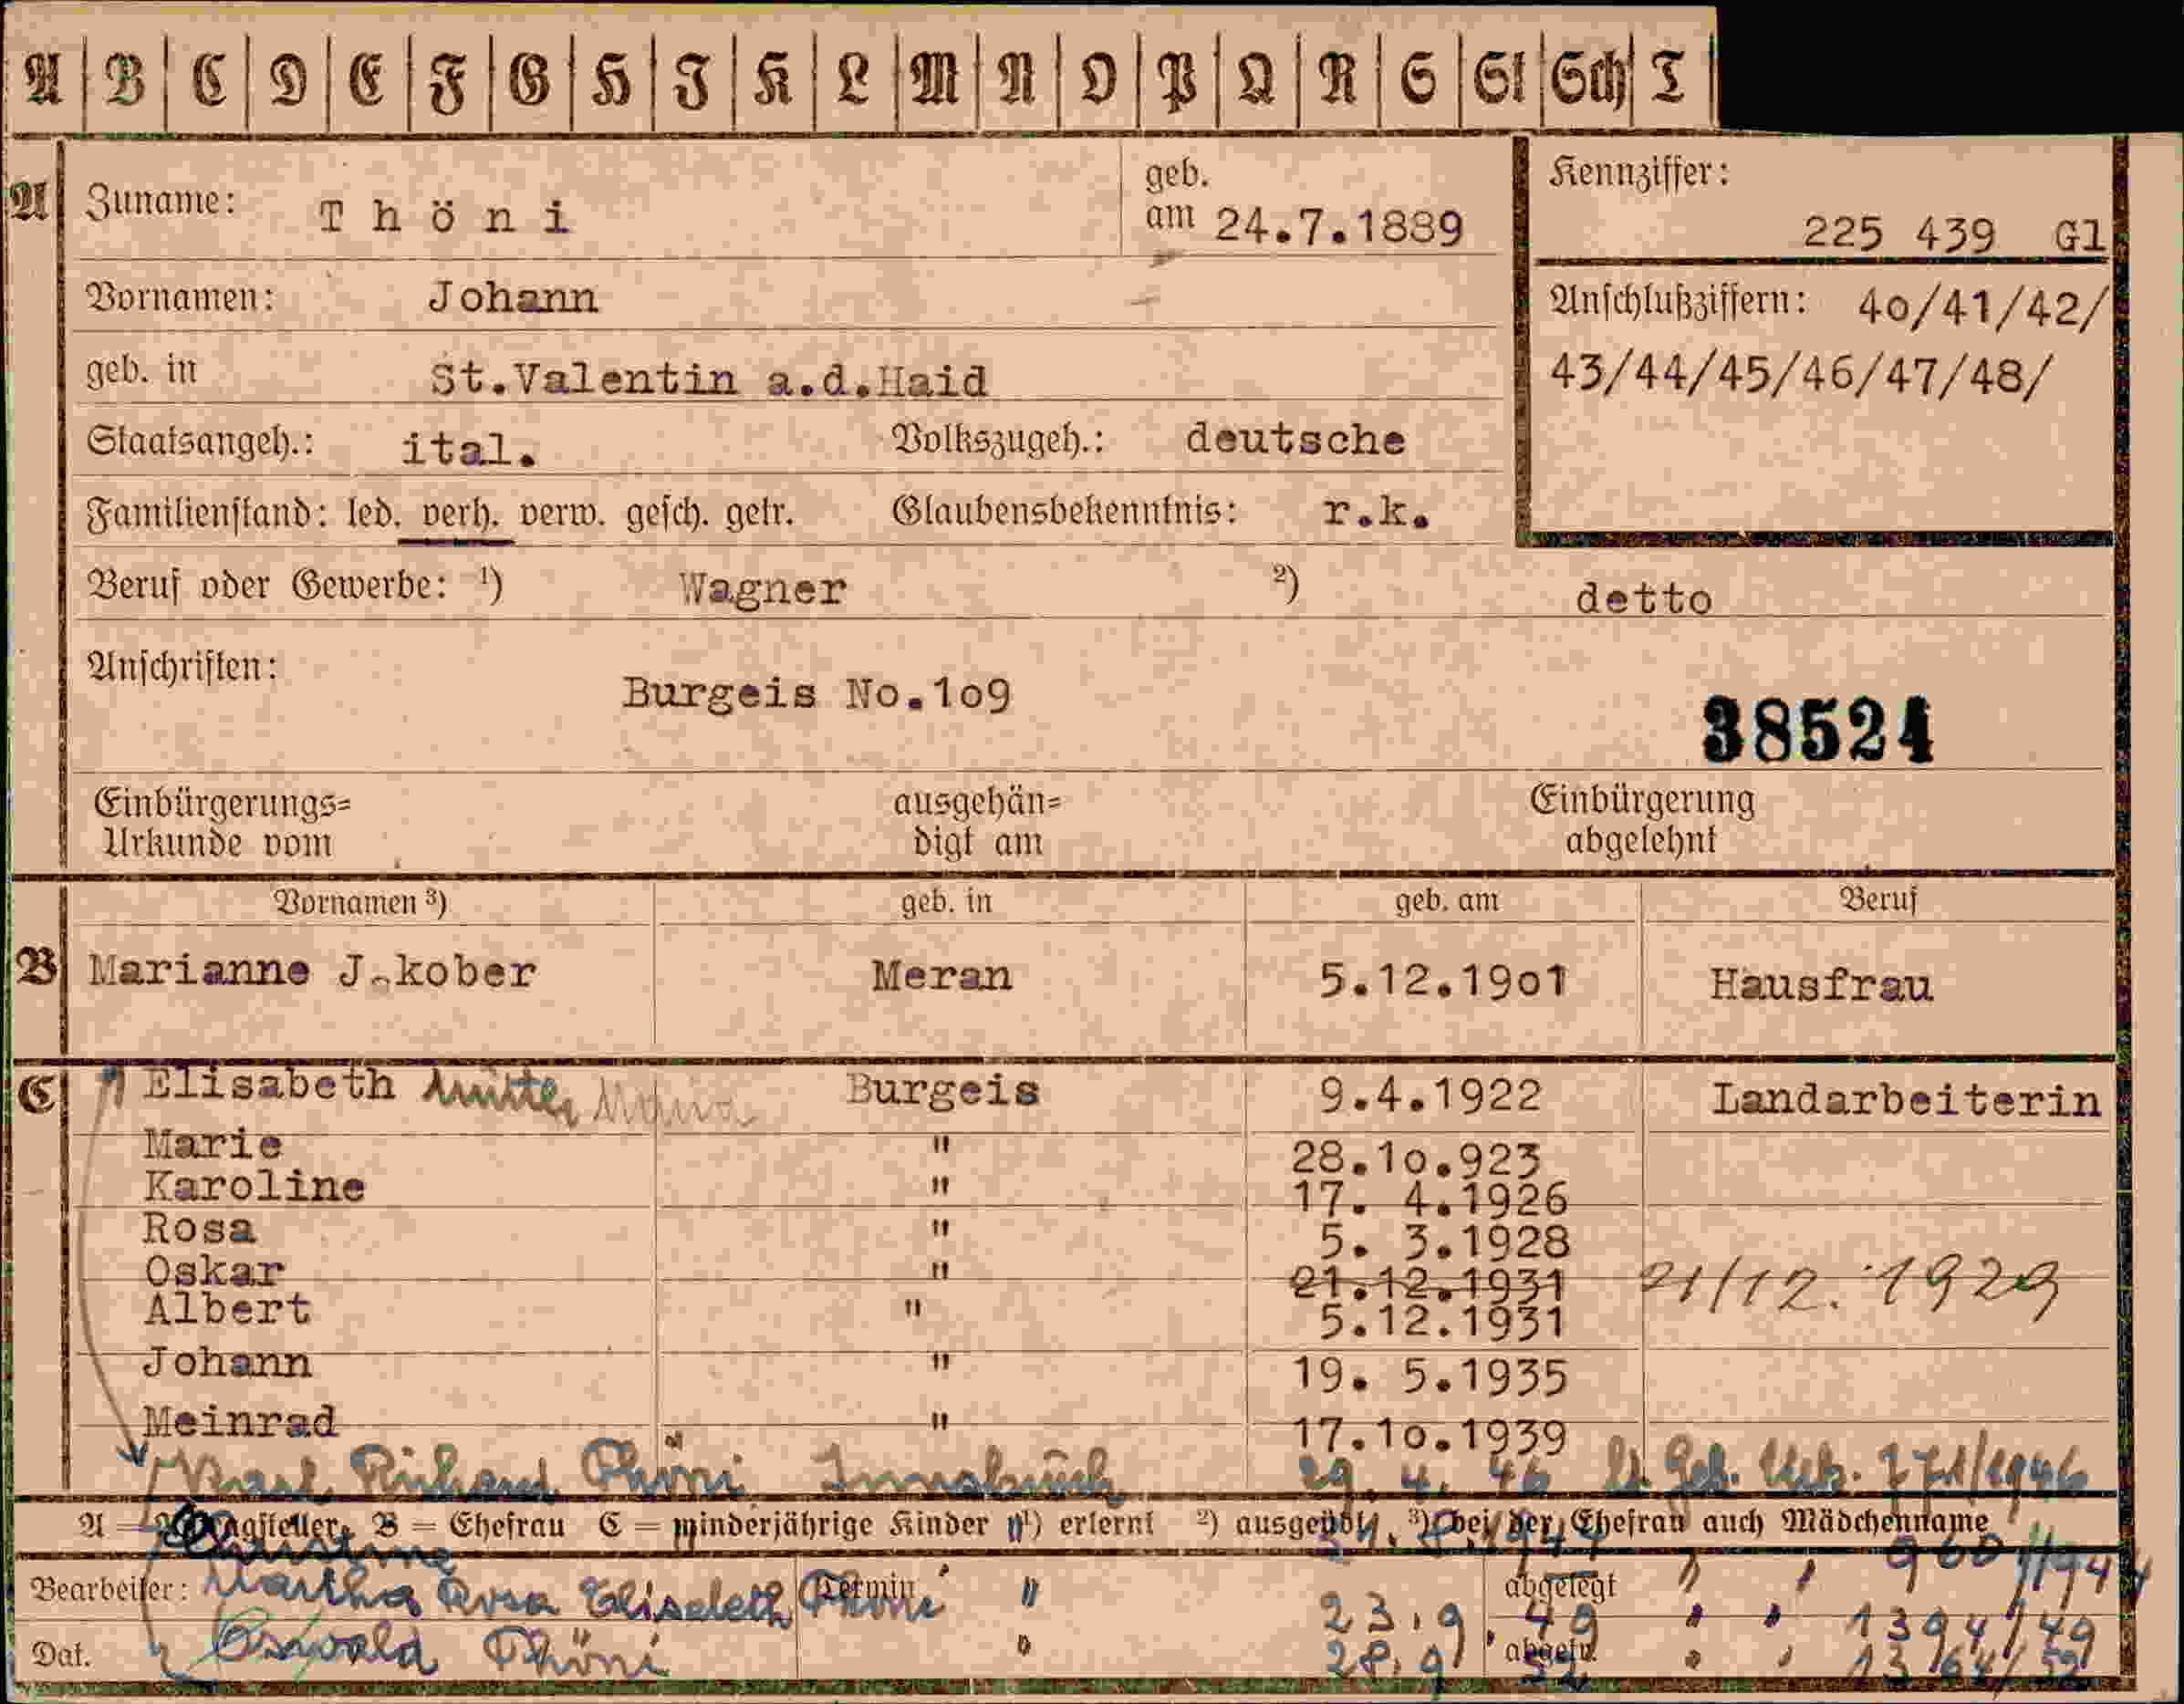 A B C D E F G H I K L M N O P Q R S St Sch T
A Zuname: Thöni geb. am 24.7.1889 Kennziffer: 225 439 Gl
Vornamen: Johann Anschlußziffern: 40/41/42/
geb. in St.Valentin a.d.Haid 43/44/45/46/47/48/
Staatsangeh.: ital. Volkszugeh.: deutsche
Familienstand: led. verh. verw. gesch. getr. Glaubensbekenntnis: r.k.
Beruf oder Gewerbe: ¹) Wagner ²) detto
Anschriften: Burgeis No.1o9
38524
Einbürgerungs= ausgehän= Einbürgerung
Urkunde vom digt am abgelehnt
Vornamen ³) geb. in geb. am Beruf
B Marianne J.kober Meran 5.12.19o1 Hausfrau
C Elisabeth Burgeis 9.4.1922 Landarbeiterin
Marie " 28.1o.923
Karoline " 17. 4.1926
Rosa " 5. 3.1928
Oskar " 21.12.1931 21/12.1929
Albert " 5.12.1931
Johann " 19. 5.1935
Meinrad " 17.1o.1939
Karl Richard Thöni Innsbruck 29. 4. 46 lt. Geb. Urk. 771/1946
A = Antragsteller, B = Ehefrau C = minderjährige Kinder ¹) erlernt ²) ausgeübt, ³) bei der Ehefrau auch Mädchenname
Christine
Bearbeiter: Martha Rosa Elisabeth Thöni Termin " 23.9.49 abgelegt " " 1394/49
Dat. Oswald Thöni " 28.9. 52 " " 1364/52